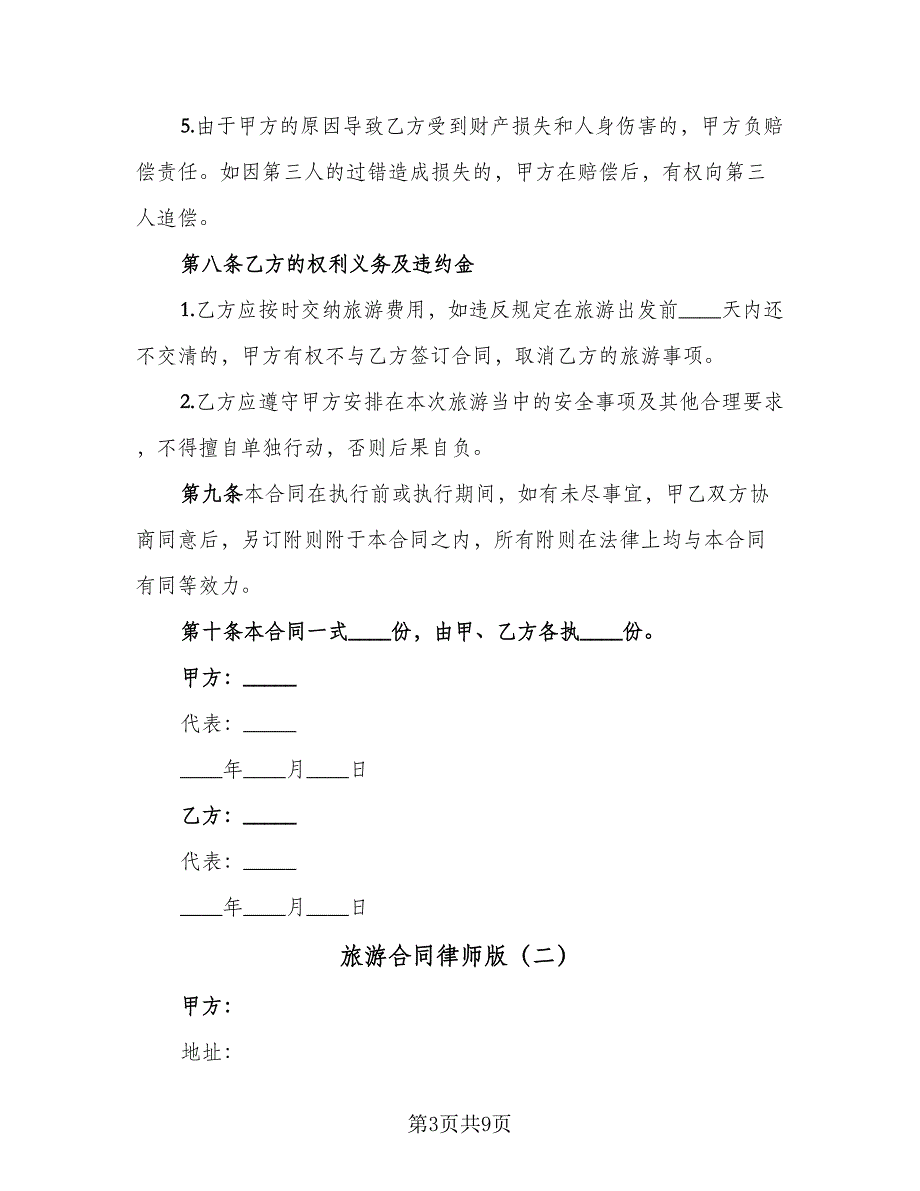 5.由于甲方的原因导致乙方受到财产损失和人身伤害的，甲方负赔
偿责任。如因第三人的过错造成损失的，甲方在赔偿后，有权向第三
人追偿。
第八条乙方的权利义务及违约金
1.乙方应按时交纳旅游费用，如违反规定在旅游出发前____天内还
不交清的，甲方有权不与乙方签订合同，取消乙方的旅游事项。
2.乙方应遵守甲方安排在本次旅游当中的安全事项及其他合理要求
，不得擅自单独行动，否则后果自负。
第九条本合同在执行前或执行期间，如有未尽事宜，甲乙双方协
商同意后，另订附则附于本合同之内，所有附则在法律上均与本合同
有同等效力。
第十条本合同一式____份，由甲、乙方各执____份。
甲方：_____
代表：_____
____年____月____日
乙方：_____
代表：_____
____年____月____日
旅游合同律师版（二）
甲方：
地址：
第3页共9页